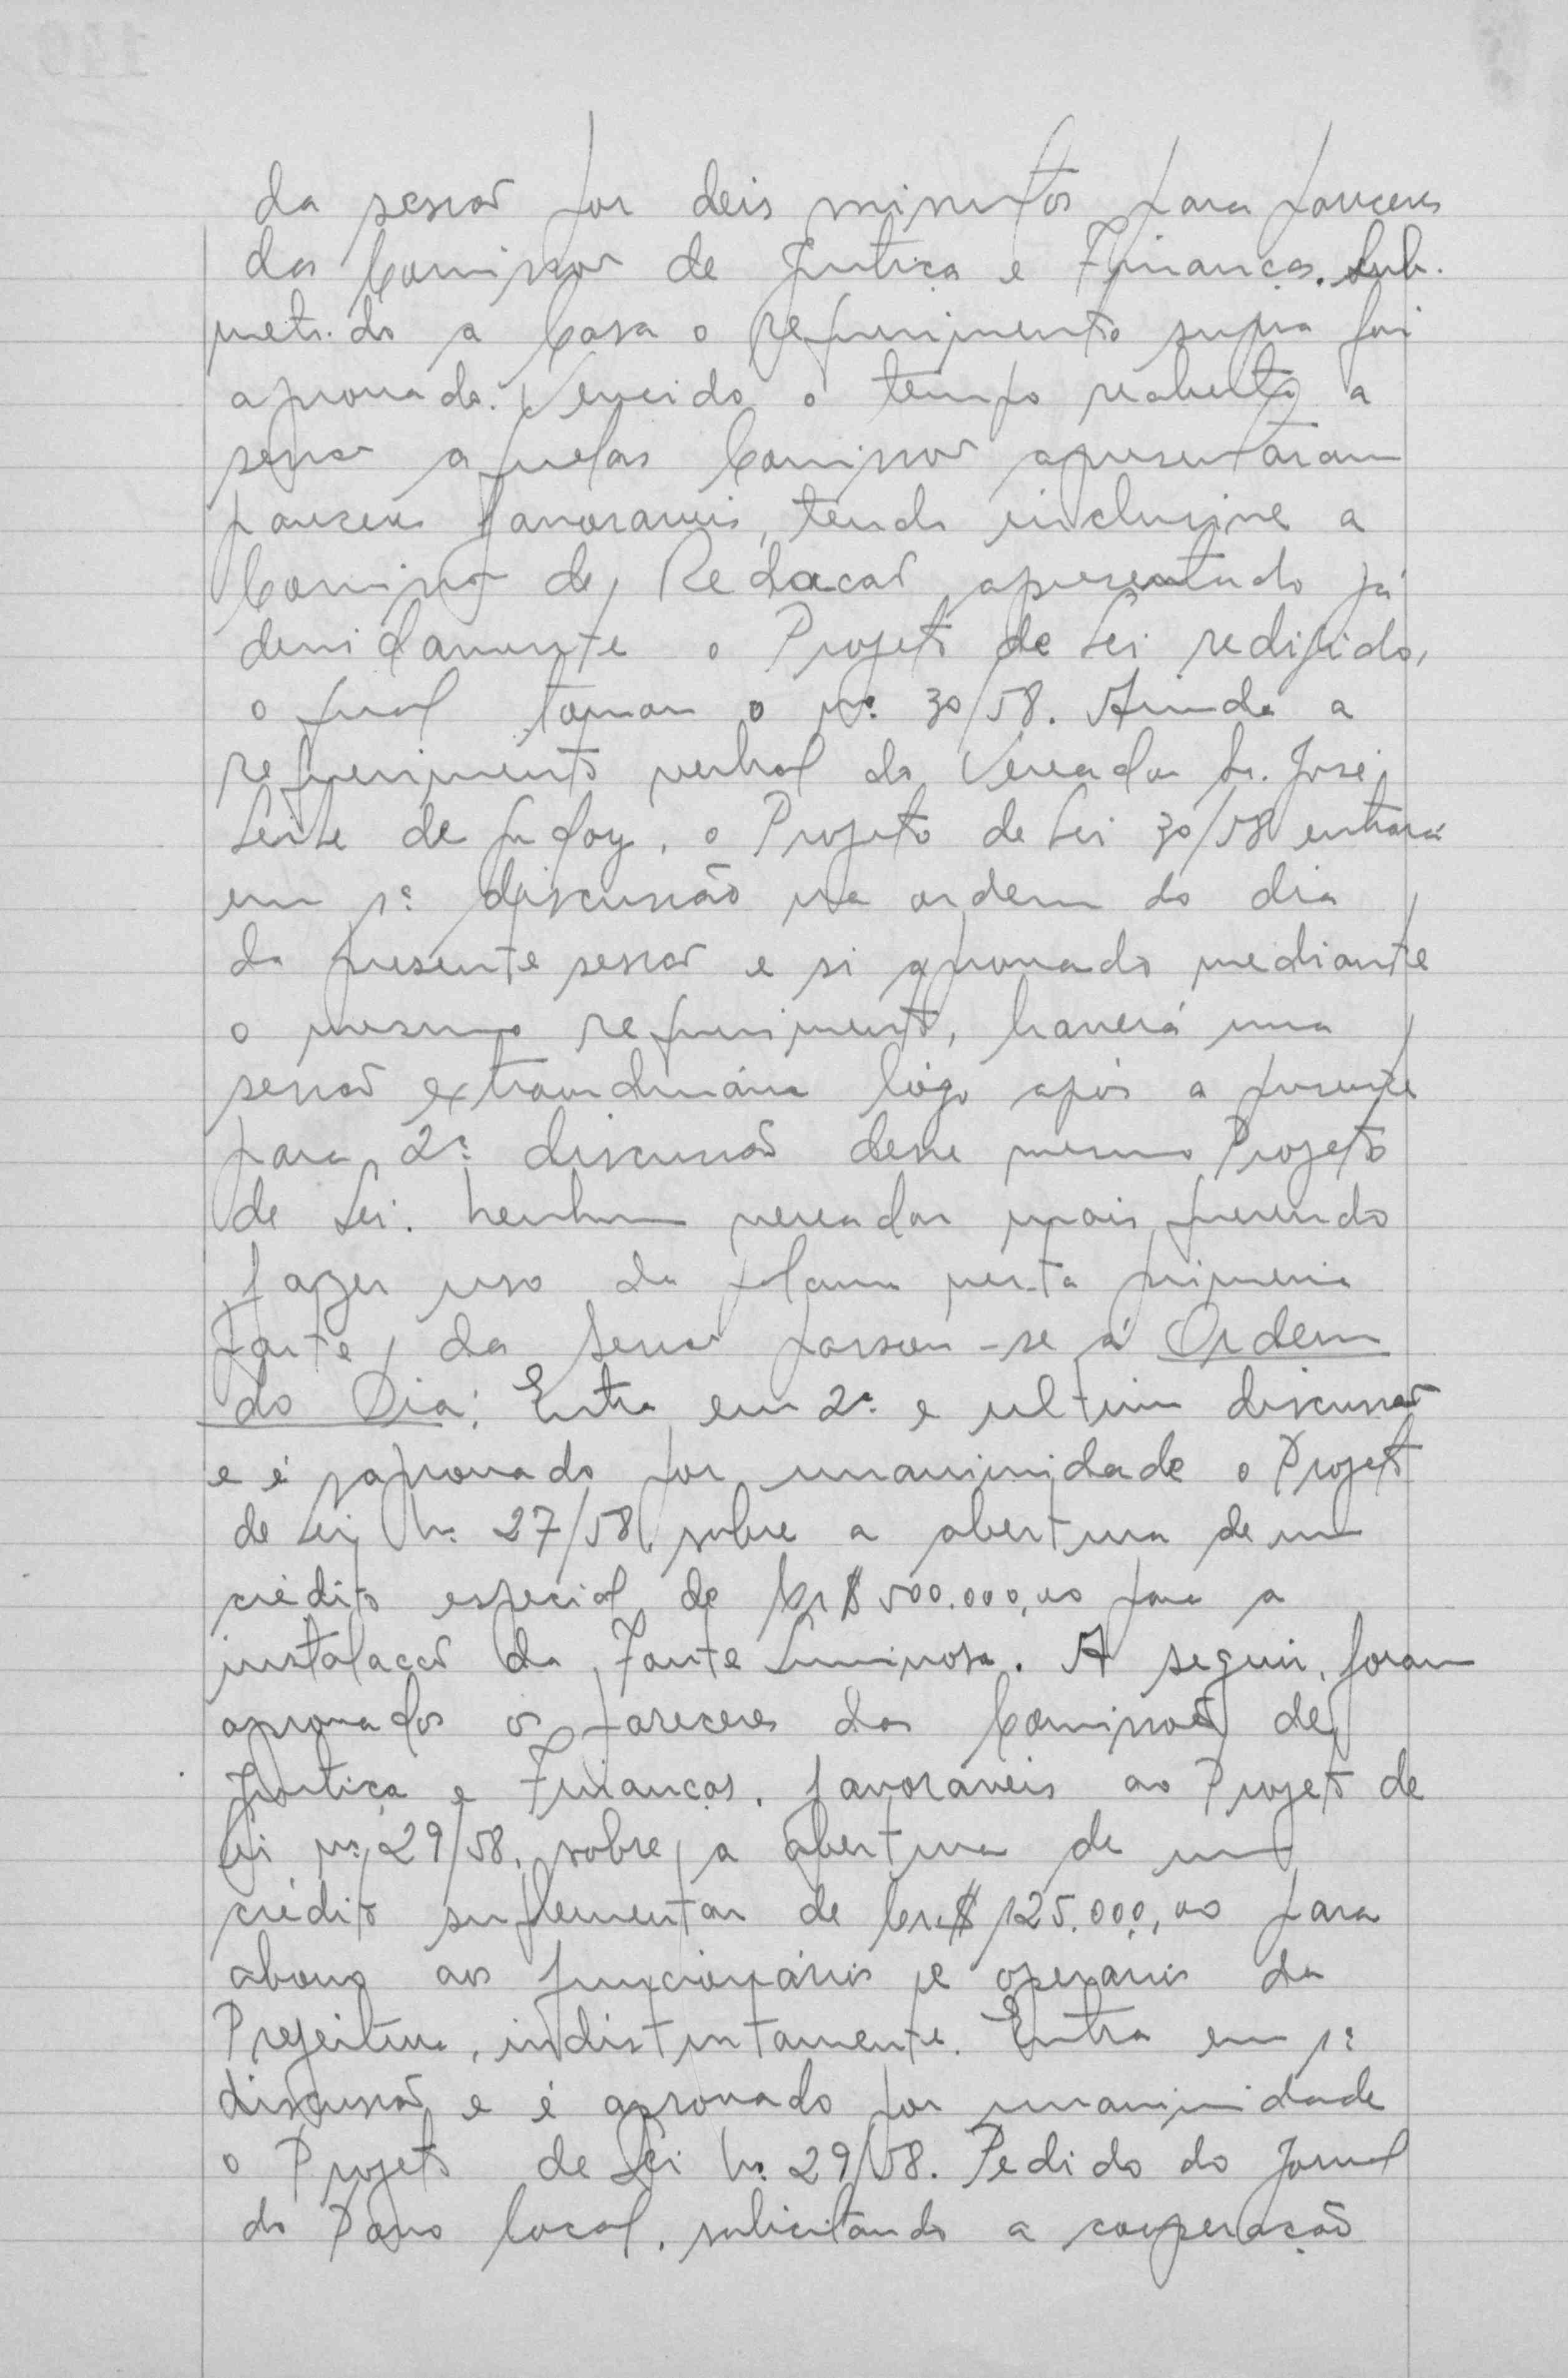 da sessão por deis minutos para pareceres
das Comissões de Justiça e Finanças. Sub-
metido a Casa o requerimento supra foi
aprovado. Vencido o tempo reaberta a
sessão aquelas Comissões apresentaram
pareceres favoraveis, tendo inclusive a
Comissão de Redacaõ apresentado já
devidamente o Projeto de Lei redigido,
o qual tomou o nº 30/58. Ainda a
requerimento verbal do Vereador Sr. José
Leite de, o Projeto de Lei 30/58 entrará
em 1ª discussão na ordem do dia
da presente sessão e si aprovado mediante
o mesmo requerimento, haverá uma
sessão extraordinária lógo após a presente
para 2ª discussão desse mesmo Projeto
de Lei. Nenhum vereador mais querendo
fazer uso da palavra nesta primeira
parte da sessão passou-se á Ordem
do Dia: Entra em 2ª e ultima discussão
e é aprovado por unanimidade o Projeto
de Lei Nº 27/58 sobre a abertura de um
crédito especial de Cr$ 500.000,00 para a
instalacaõ da Fonte Luminosa. A seguir, foram
aprovados os pareceres das Comissões de
Justiça e Finanças, favoráveis ao Projeto de
Lei nº 29/58, sobre a abertura de um
crédito suplementar de Cr$ 125.000,00 para
abono aos funcionários e operarios da
Prefeitura, indistintamente. Entra em 1ª
discussão e é aprovado por unanimidade
o Projeto de Lei Nº 29/58. Pedido do Jornal
do Povo local, solicitando a cooperação